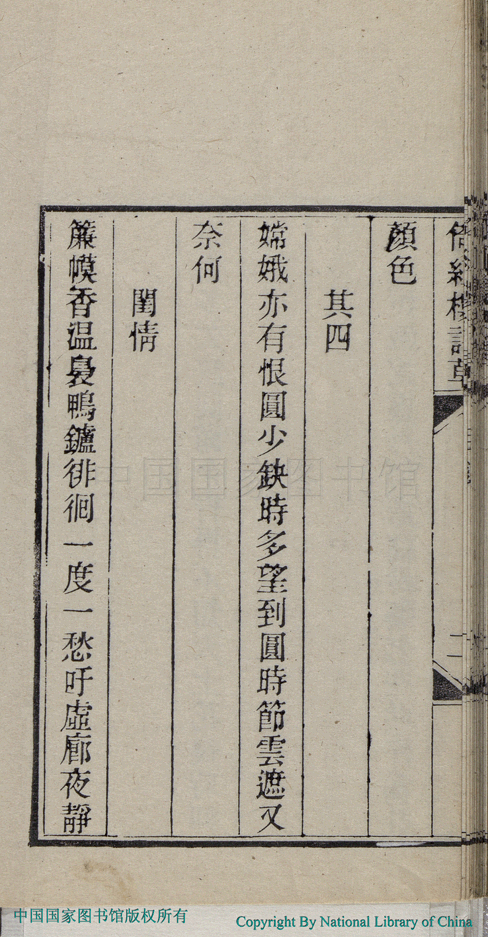 顏色
其四
嫦娥亦有恨圓少缺時多望到圓時節雲遮又
奈何
閨情
簾幙香温裊鴨鑪徘徊一度一愁吁虛廊夜靜
中国国家图书馆
中国国家图书馆版权所有
Copyright By National Library of China